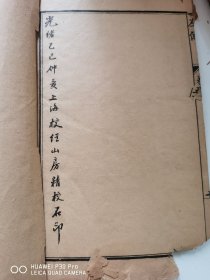 光緒乙巳仲夏上海校經山房精校石印
HUAWEI P30 PRO
LEICA QUAD CAMERA